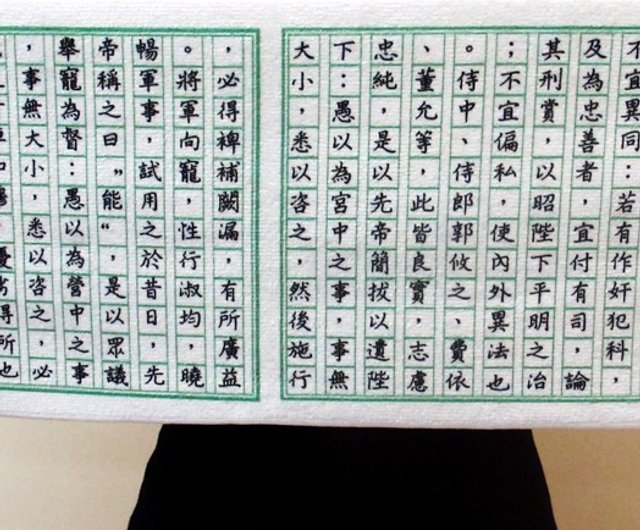 不宜異同：若有作奸犯科，
及為忠善者，宜付有司，論
其刑賞，以昭陛下平明之治
；不宜偏私，使內外異法也
。侍中、侍郎郭攸之、費依
、董允等，此皆良實，志慮
忠純，是以先帝簡拔以遺陛
下：愚以為宮中之事，事無
大小，悉以咨之，然後施行
，必得裨補闕漏，有所廣益
。將軍向寵，性行淑均，曉
暢軍事，試用之於昔日，先
帝稱之曰”能“，是以眾議
舉寵為督：愚以為營中之事
，事無大小，悉以咨之，必
得所也